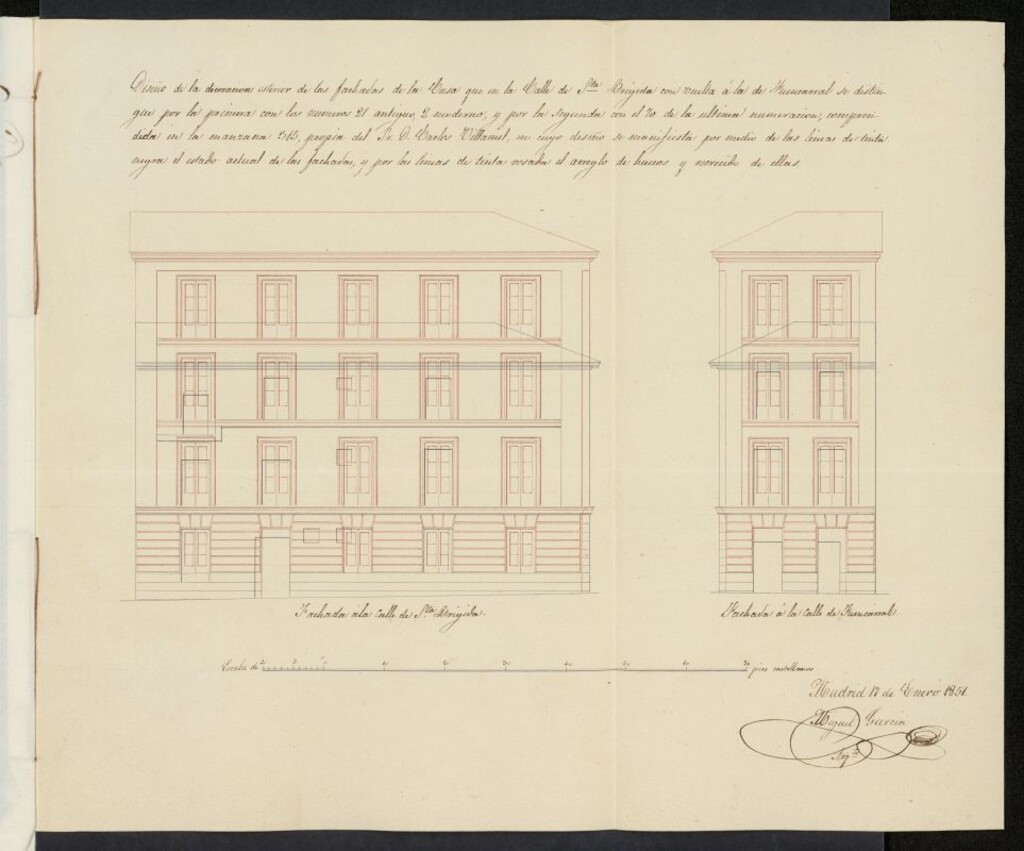 Diseño de la decoracion esterior de las fachadas de la Casa que en la Calle de Sta. Brigida con vuelta á la de Fuencarral se distin-
gue por la primera con los numeros 21 antiguo, 2 moderno, y por la segunda con el 70 de la ultima numeracion, compren-
dida en la manzana 315, propia del Sr. D. Carlos Villamil, en cuyo diseño se manifiesta por medio de las lineas de tinta
negra el estado actual de las fachadas, y por las lineas de tinta rosada el arreglo de huecos y de ellas.
Fachada á la calle de Sta. Brigida.
Fachada á la calle de Fuencarral.
Escala de pies castellanos
Madrid 17 de Enero 1851.
Miguel Garcia
Arqto.